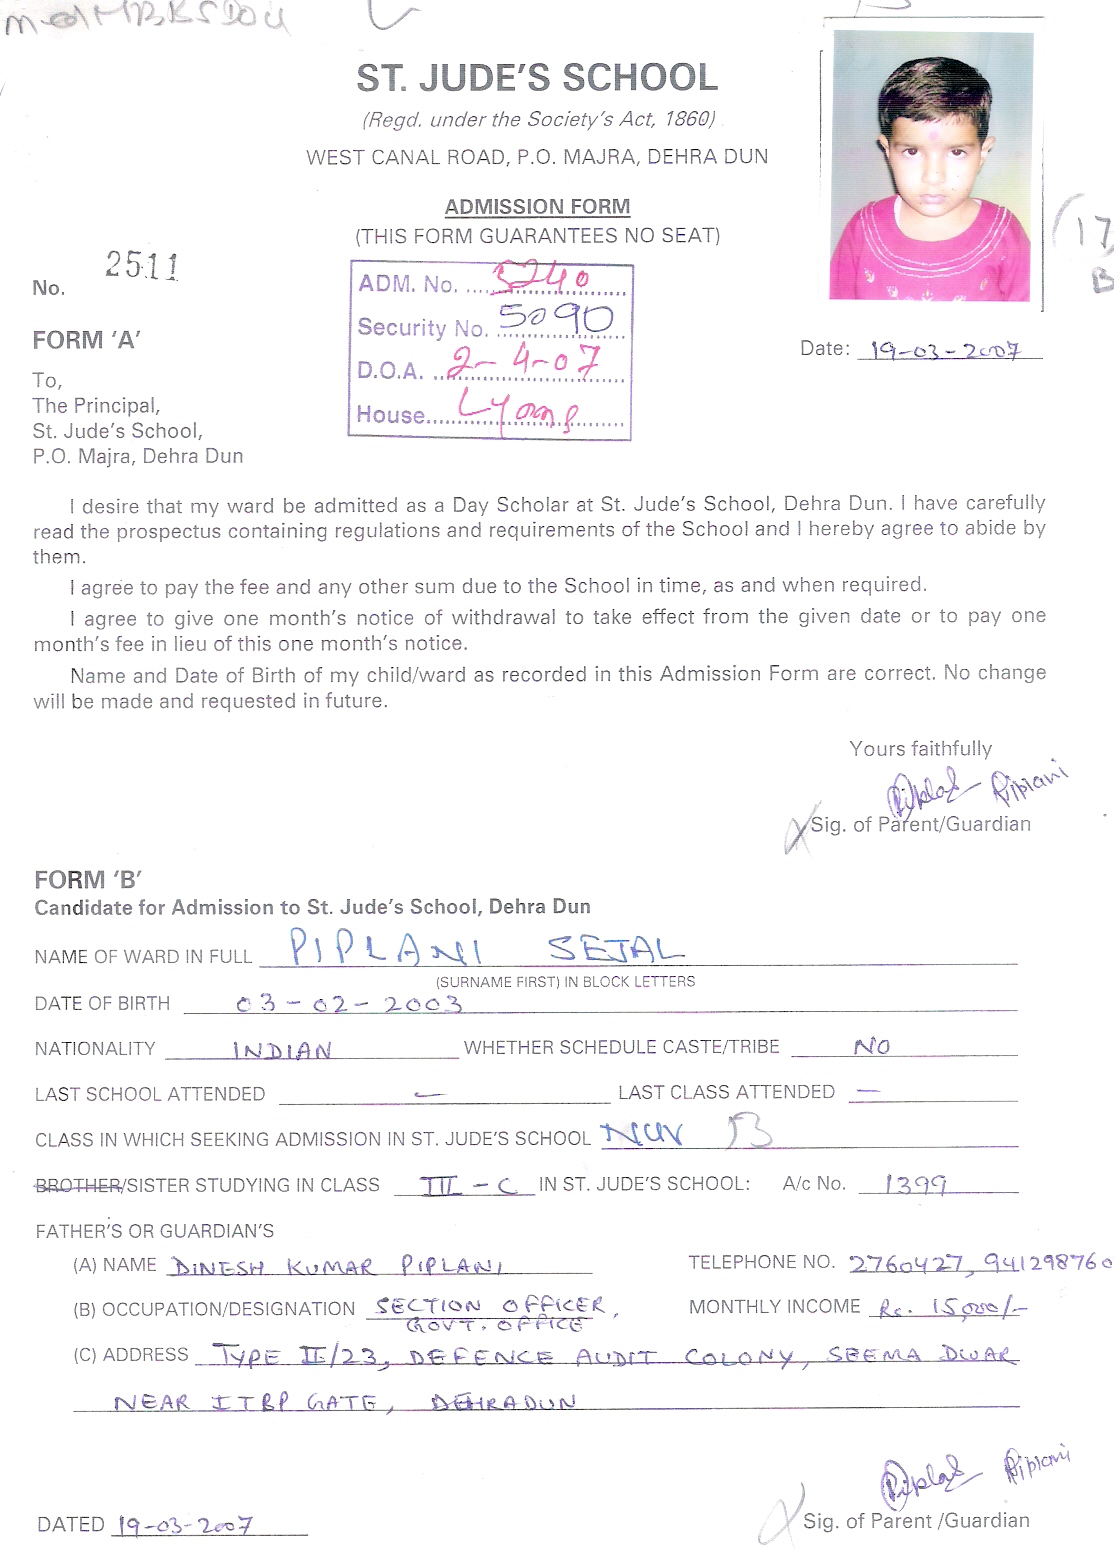 ST. JUDE'S SCHOOL
(Regd. under the Society's Act, 1860)
WEST CANAL ROAD, P.O. MAJRA, DEHRA DUN
ADMISSION FORM
(THIS FORM GUARANTEES NO SEAT)
(17
B
No. 2511
ADM. No. 5240
Security No. 5090
D.O.A. 2-4-07
House Lyons
FORM 'A'
Date: 19-03-2007
To,
The Principal,
St. Jude's School,
P.O. Majra, Dehra Dun
I desire that my ward be admitted as a Day Scholar at St. Jude's School, Dehra Dun. I have carefully
read the prospectus containing regulations and requirements of the School and I hereby agree to abide by
them.
I agree to pay the fee and any other sum due to the School in time, as and when required.
I agree to give one month's notice of withdrawal to take effect from the given date or to pay one
month's fee in lieu of this one month's notice.
Name and Date of Birth of my child/ward as recorded in this Admission Form are correct. No change
will be made and requested in future.
Yours faithfully
Piplani
Sig. of Parent/Guardian
FORM 'B'
Candidate for Admission to St. Jude's School, Dehra Dun
NAME OF WARD IN FULL PIPLANI SEJAL
(SURNAME FIRST) IN BLOCK LETTERS
DATE OF BIRTH 03-02-2003
NATIONALITY INDIAN WHETHER SCHEDULE CASTE/TRIBE NO
LAST SCHOOL ATTENDED — LAST CLASS ATTENDED —
CLASS IN WHICH SEEKING ADMISSION IN ST. JUDE'S SCHOOL NUR B
BROTHER/SISTER STUDYING IN CLASS III-C IN ST. JUDE'S SCHOOL: A/c No. 1399
FATHER'S OR GUARDIAN'S
(A) NAME DINESH KUMAR PIPLANI TELEPHONE NO. 2760427, 941298760
(B) OCCUPATION/DESIGNATION SECTION OFFICER, MONTHLY INCOME Rs. 15,000/-
GOVT. OFFICE
(C) ADDRESS TYPE II/23, DEFENCE AUDIT COLONY, SEEMA DWAR
NEAR ITBP GATE, DEHRADUN
Piplani
DATED 19-03-2007 Sig. of Parent /Guardian